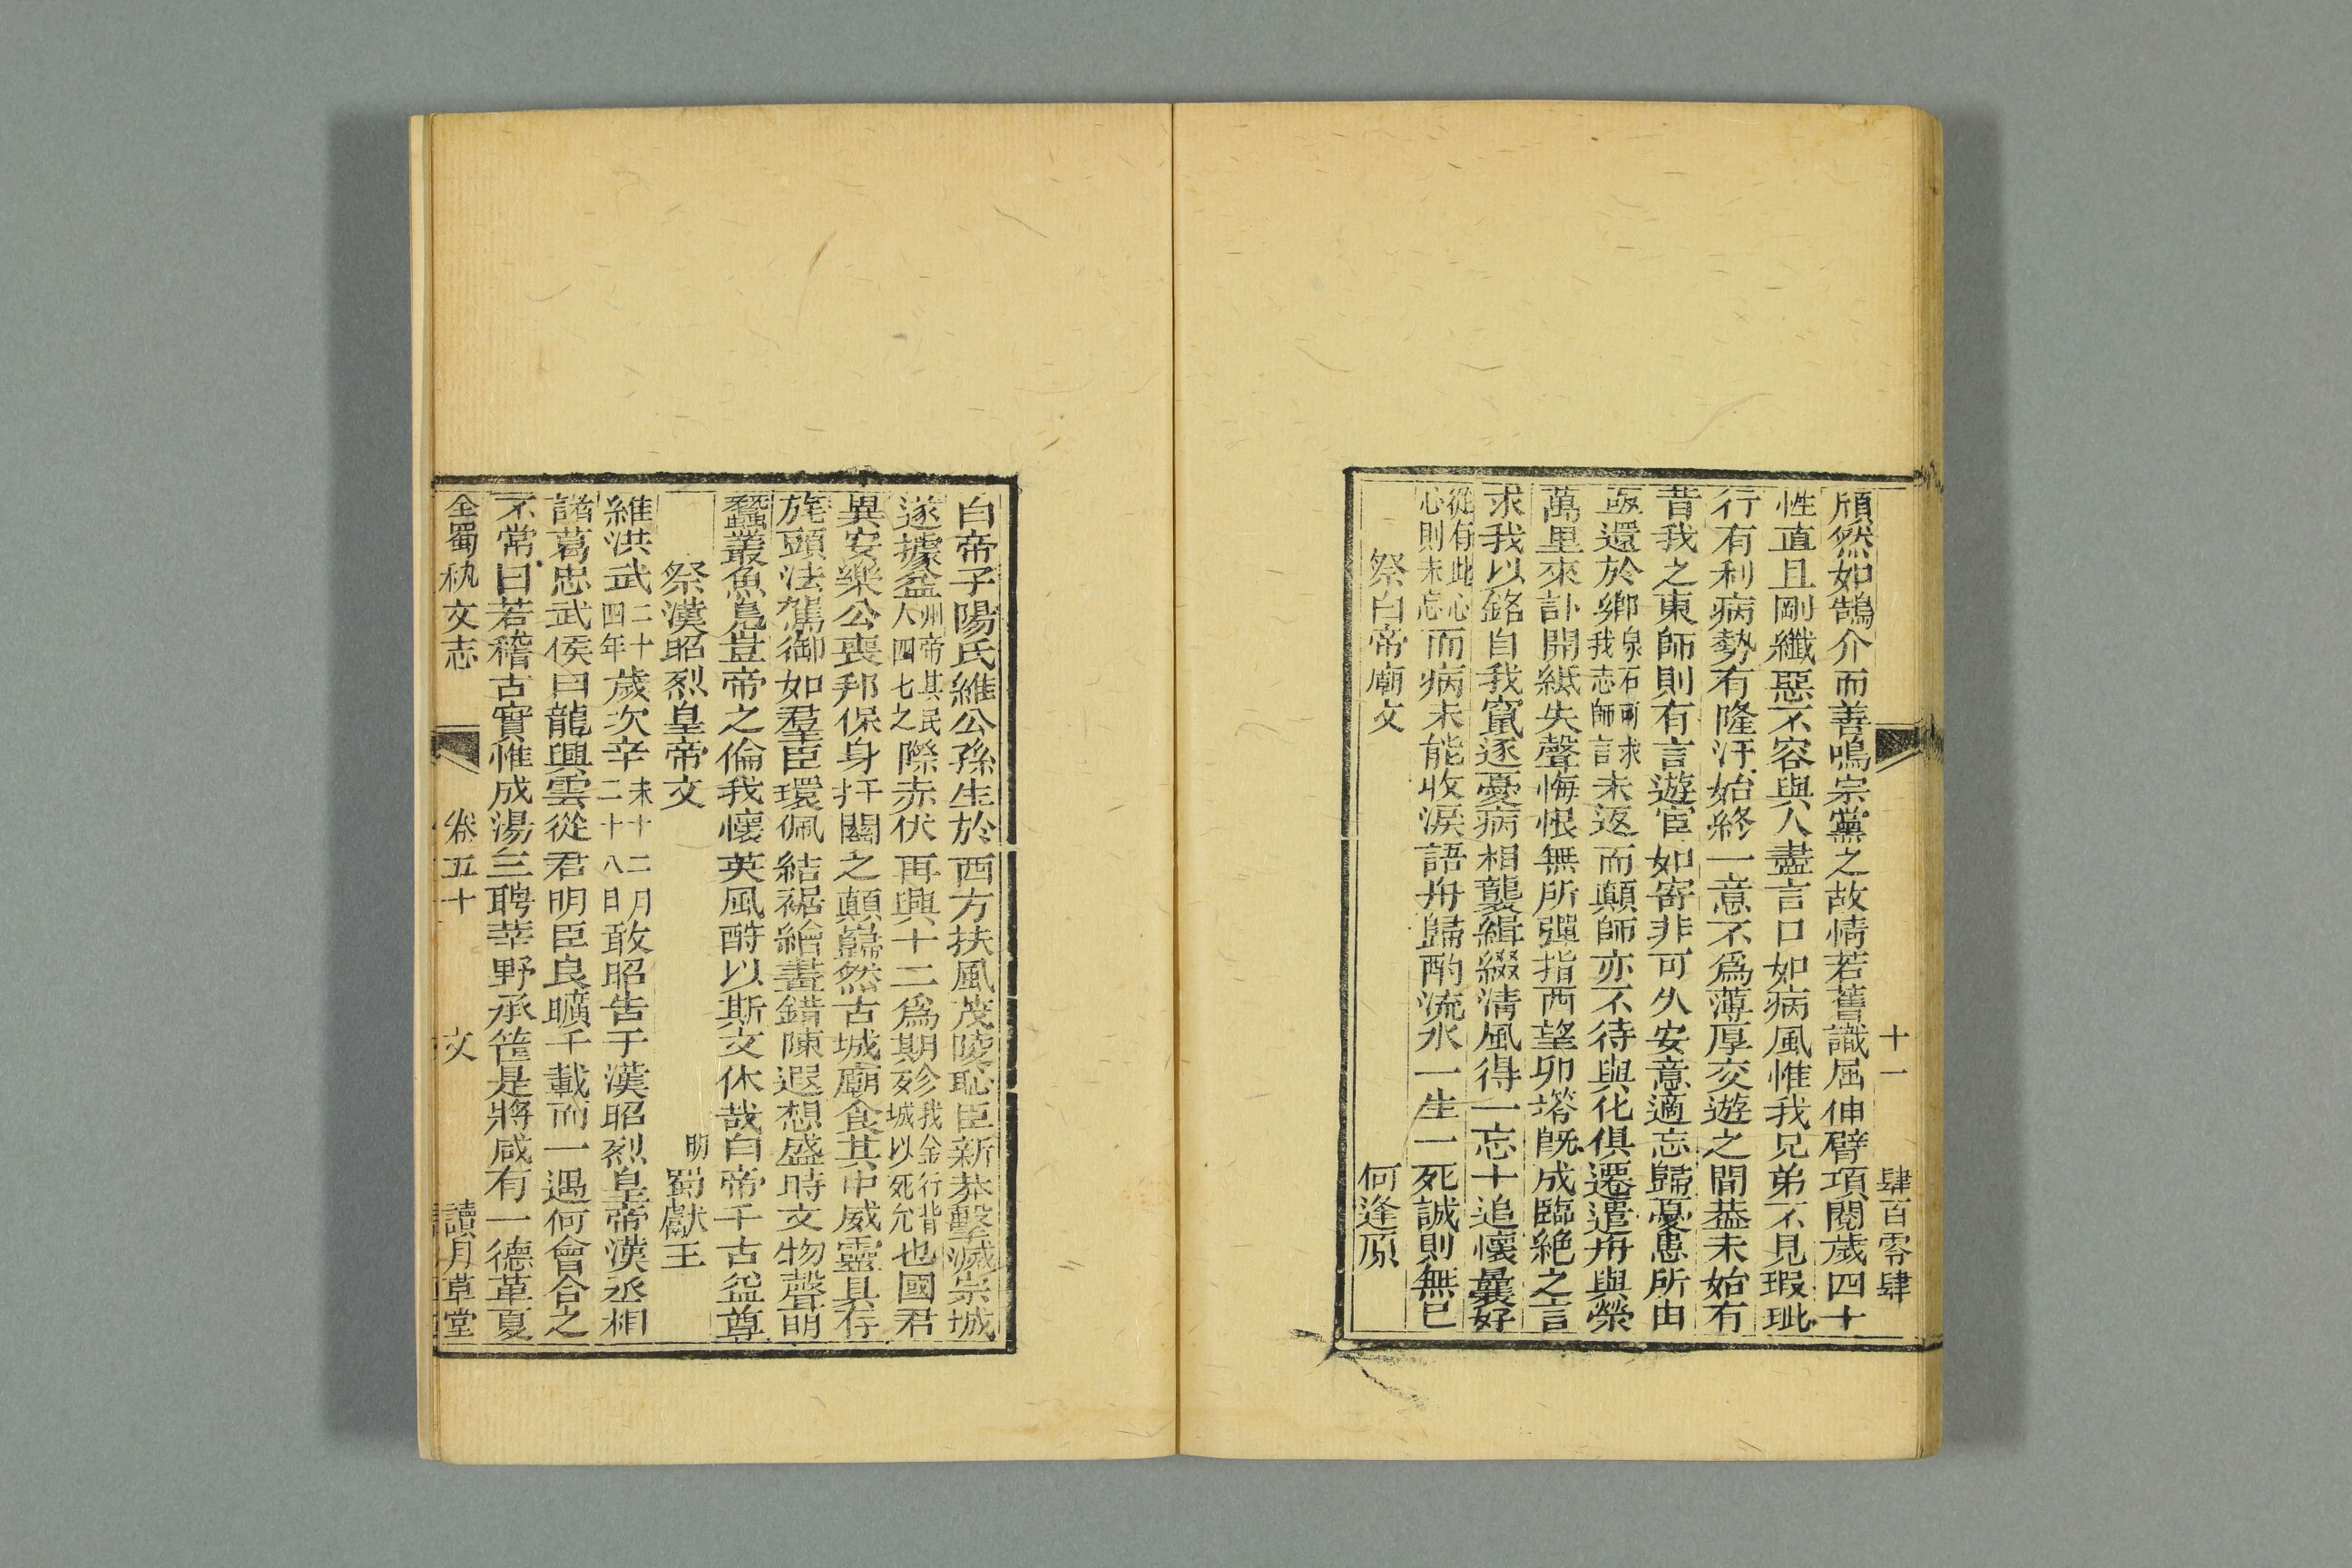 十一　肆百零肆
頎然如鵠介而善鳴宗黨之故情若舊識屈伸臂項閱歲四十
性直且剛纖惡不容與人盡言口如病風惟我兄弟不見瑕玼
行有利病勢有隆汙始終一意不為薄厚交遊之間葢未始有
昔我之東師則有言遊宦如寄非可久安意適忘歸憂患所由
亟還於鄉泉石可求我志師言未返而顛師亦不待與化俱遷遣舟與榮
萬里來訃開緘失聲悔恨無所彈指西望卯塔既成臨絶之言
求我以銘自我竄逐憂病相襲緝綴清風得一忘十追懷曩好
從有此心心則未忘而病未能收淚語舟歸酌流水一生一死誠則無已
祭白帝廟文　何逢原
白帝子陽氏維公孫生於西方扶風茂陵恥臣新莽擊滅宗城
遂據益州帝其民人四七之際赤伏再興十二為期歿我金行背城以死允也國君
異安樂公喪邦保身扞關之顛巋然古城廟食其中威靈具存
旄頭法駕御如羣臣環佩結裾繪畫錯陳遐想盛時文物聲明
蠶叢魚鳧豈帝之倫我懷英風酹以斯文休哉白帝千古益尊
祭漢昭烈皇帝文　明蜀獻王
維洪武二十四年歲次辛未十二月二十八日敢昭告于漢昭烈皇帝漢丞相
諸葛忠武侯曰龍興雲從君明臣良曠千載而一遇何會合之
不常曰若稽古實惟成湯三聘莘野承筐是將咸有一德革夏
全蜀秇文志　卷五十　文　讀月草堂